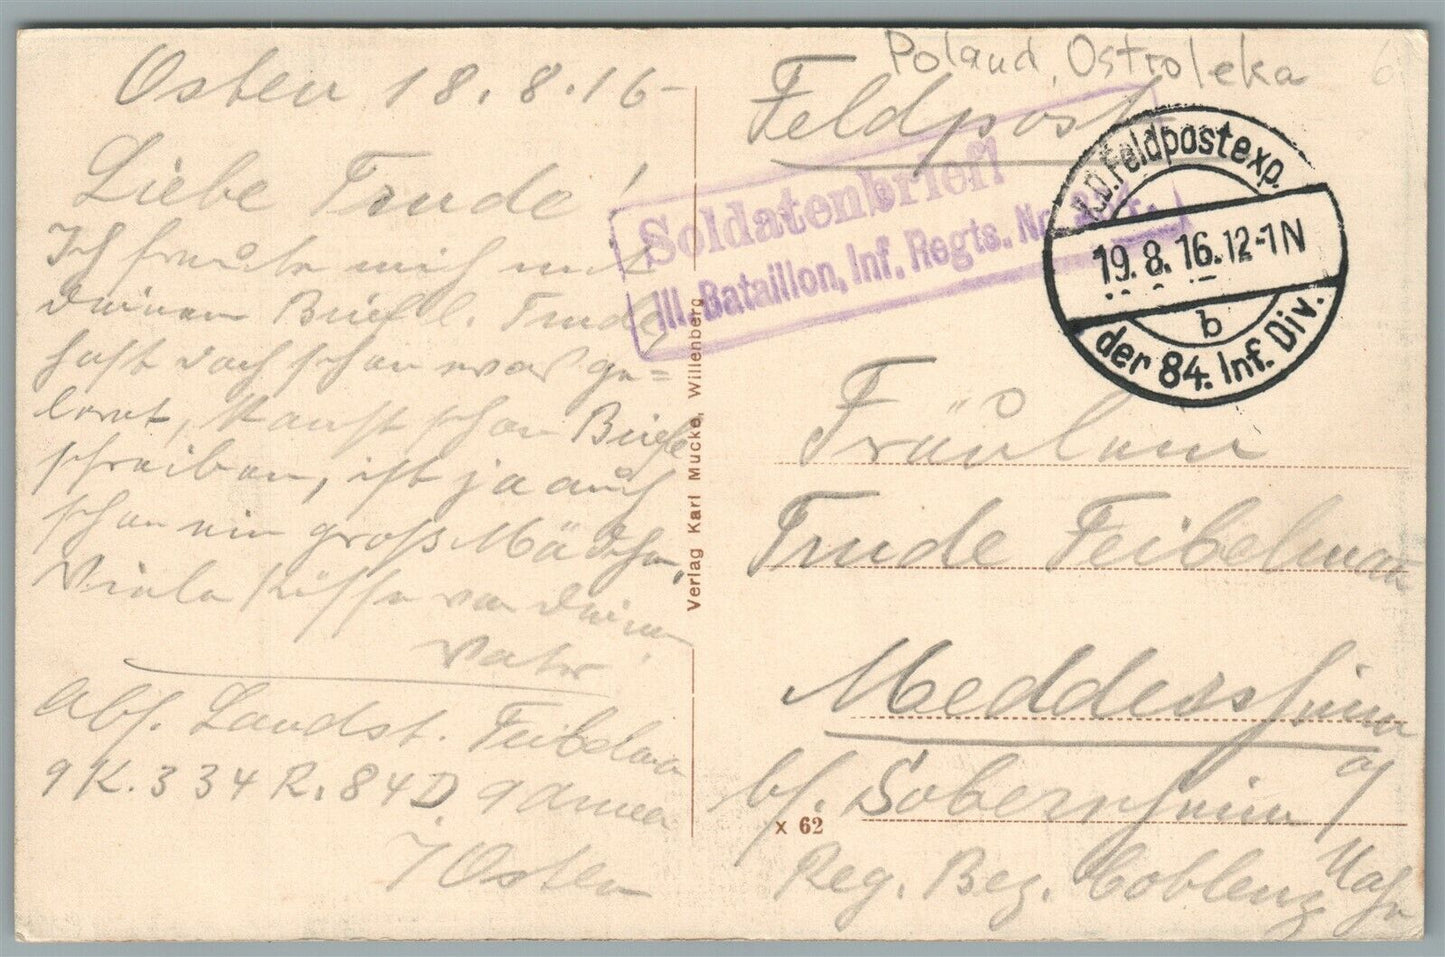 Poland, Ostroleka
6
Osten 18.8.16-
Liebe Trude!
Ich freute mich mit
Deinem Briefl. Trude
hast doch schon was ge=
lernt, kannst schon Briefe
schreiben, ist ja auch
schon ein groß Mädchen,
Viele Küsse von Deinem
Vater!
Abs. Landst. Feibelman
9 K. 334 R. 84 D. 9 Armee
i/Osten
Verlag Karl Mucke, Willenberg
Feldpost
Soldatenbrief!
III. Bataillon, Inf. Regts. Nr.
K.D. Feldpostexp.
19.8.16.12-1N
b
der 84. Inf. Div.
Fräulein
Trude Feibelman
Meddersheim
a/
bf. Sobernheim
Nahe
x 62
Reg. Bez. Coblenz